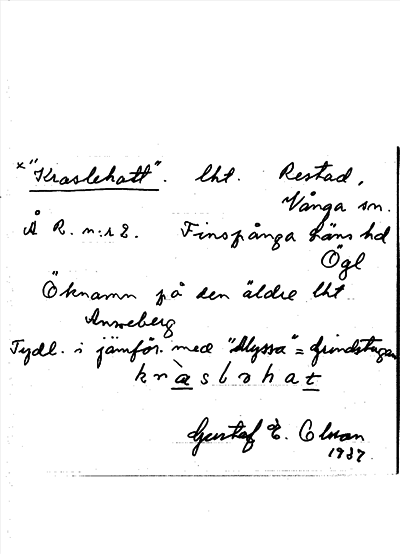 x "Kraslehatt". lht. Restad,
Vånga sn.
Å R. n:r 2. Finspånga läns hd
Ögl
Öknamn på den äldre lht
Anneberg
Tydl. i jämför. med "Myssa" = Grindstugan
k r à s l ə h a t
Gustaf E. Olson
1937.